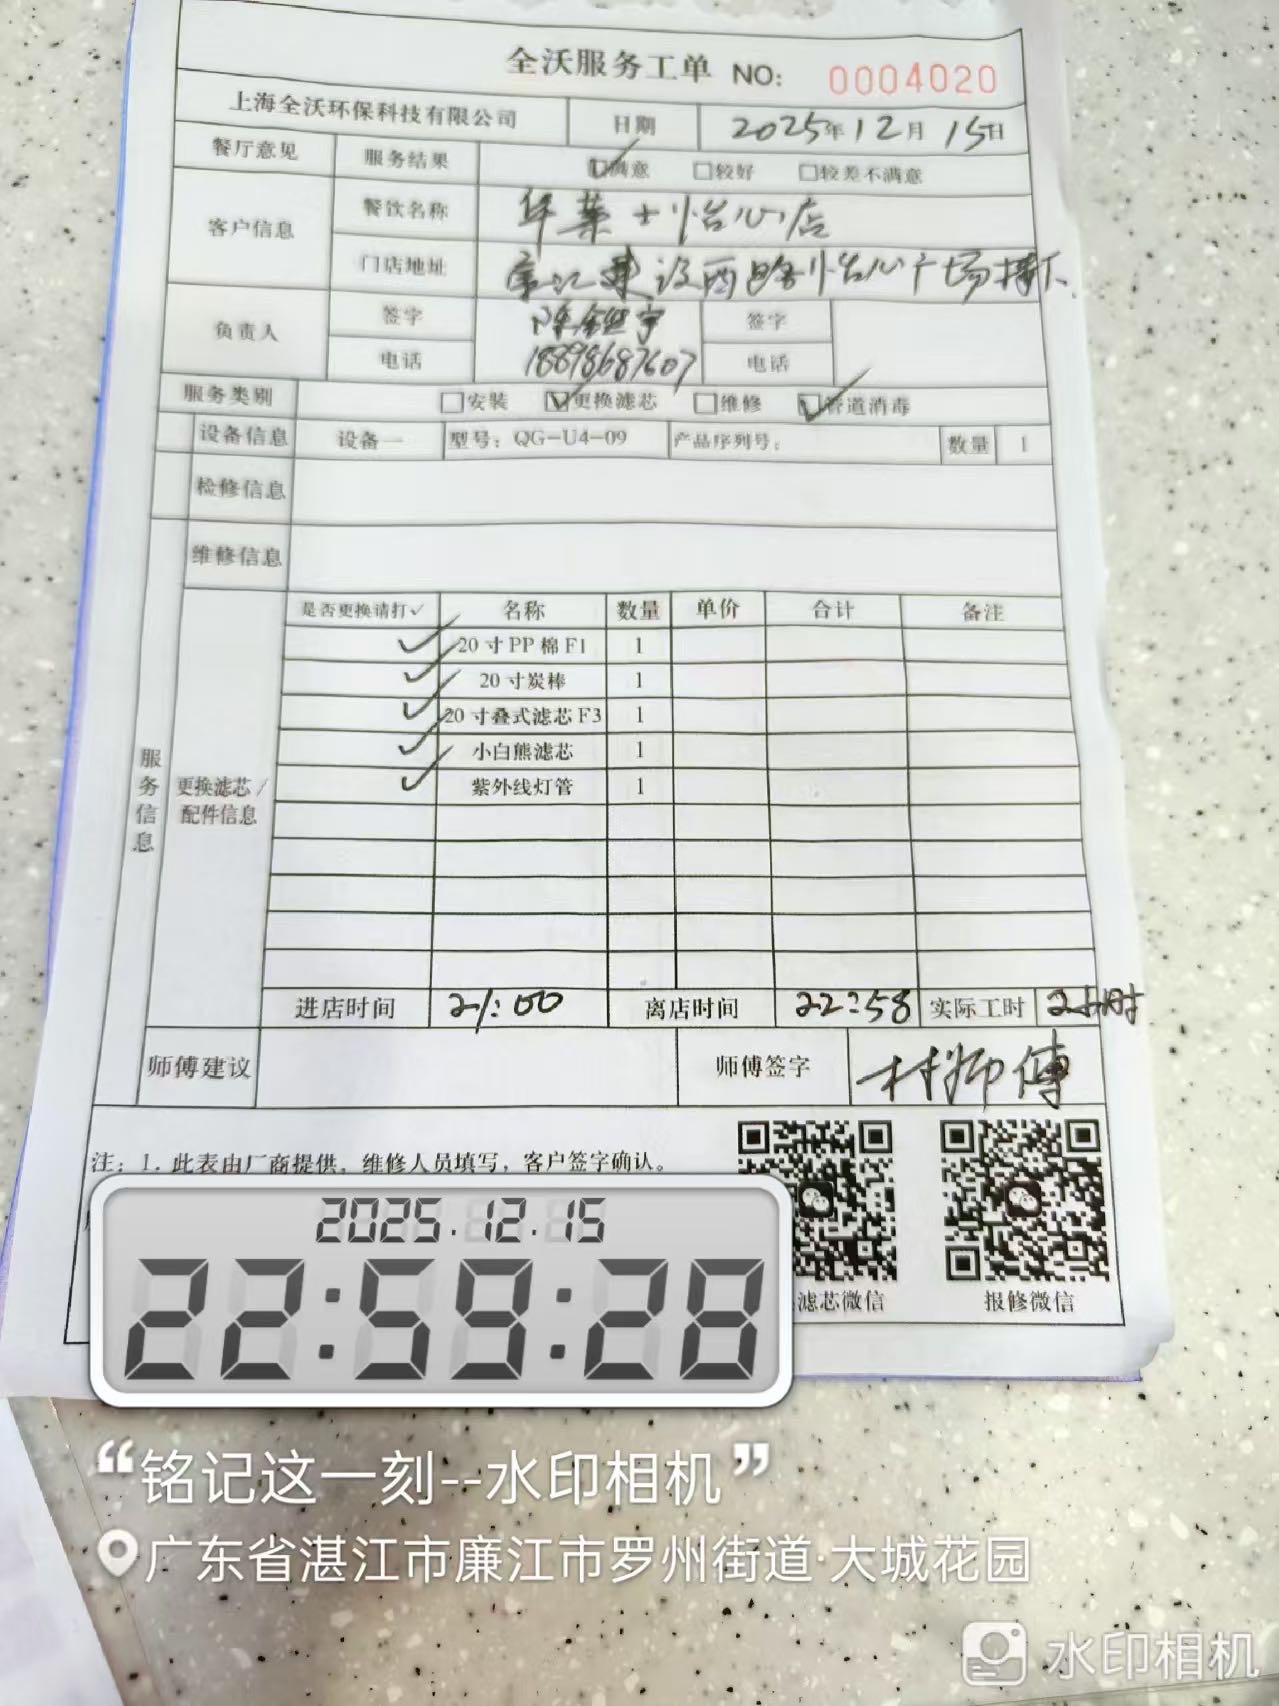 全沃服务工单 NO: 0004020
上海全沃环保科技有限公司 日期 2025年12月15日
餐厅意见 服务结果 ☑满意 □较好 □较差不满意
客户信息 餐饮名称 华莱士怡心店
门店地址 廉江建设西路怡心广场楼下
负责人 签字 签字
电话 18898687607 电话
服务类别 □安装 ☑更换滤芯 □维修 ☑管道消毒
设备信息 设备一 型号: QG-U4-09 产品序列号: 数量 1
检修信息
维修信息
服务信息
更换滤芯/配件信息
是否更换请打✓ 名称 数量 单价 合计 备注
✓ 20寸PP棉F1 1
✓ 20寸炭棒 1
✓ 20寸叠式滤芯F3 1
✓ 小白熊滤芯 1
✓ 紫外线灯管 1
进店时间 21:00 离店时间 22:58 实际工时 2小时
师傅建议 师傅签字 林师傅
注: 1. 此表由厂商提供, 维修人员填写, 客户签字确认。
滤芯微信 报修微信
2025.12.15
22:59:28
“铭记这一刻--水印相机”
广东省湛江市廉江市罗州街道·大城花园
水印相机